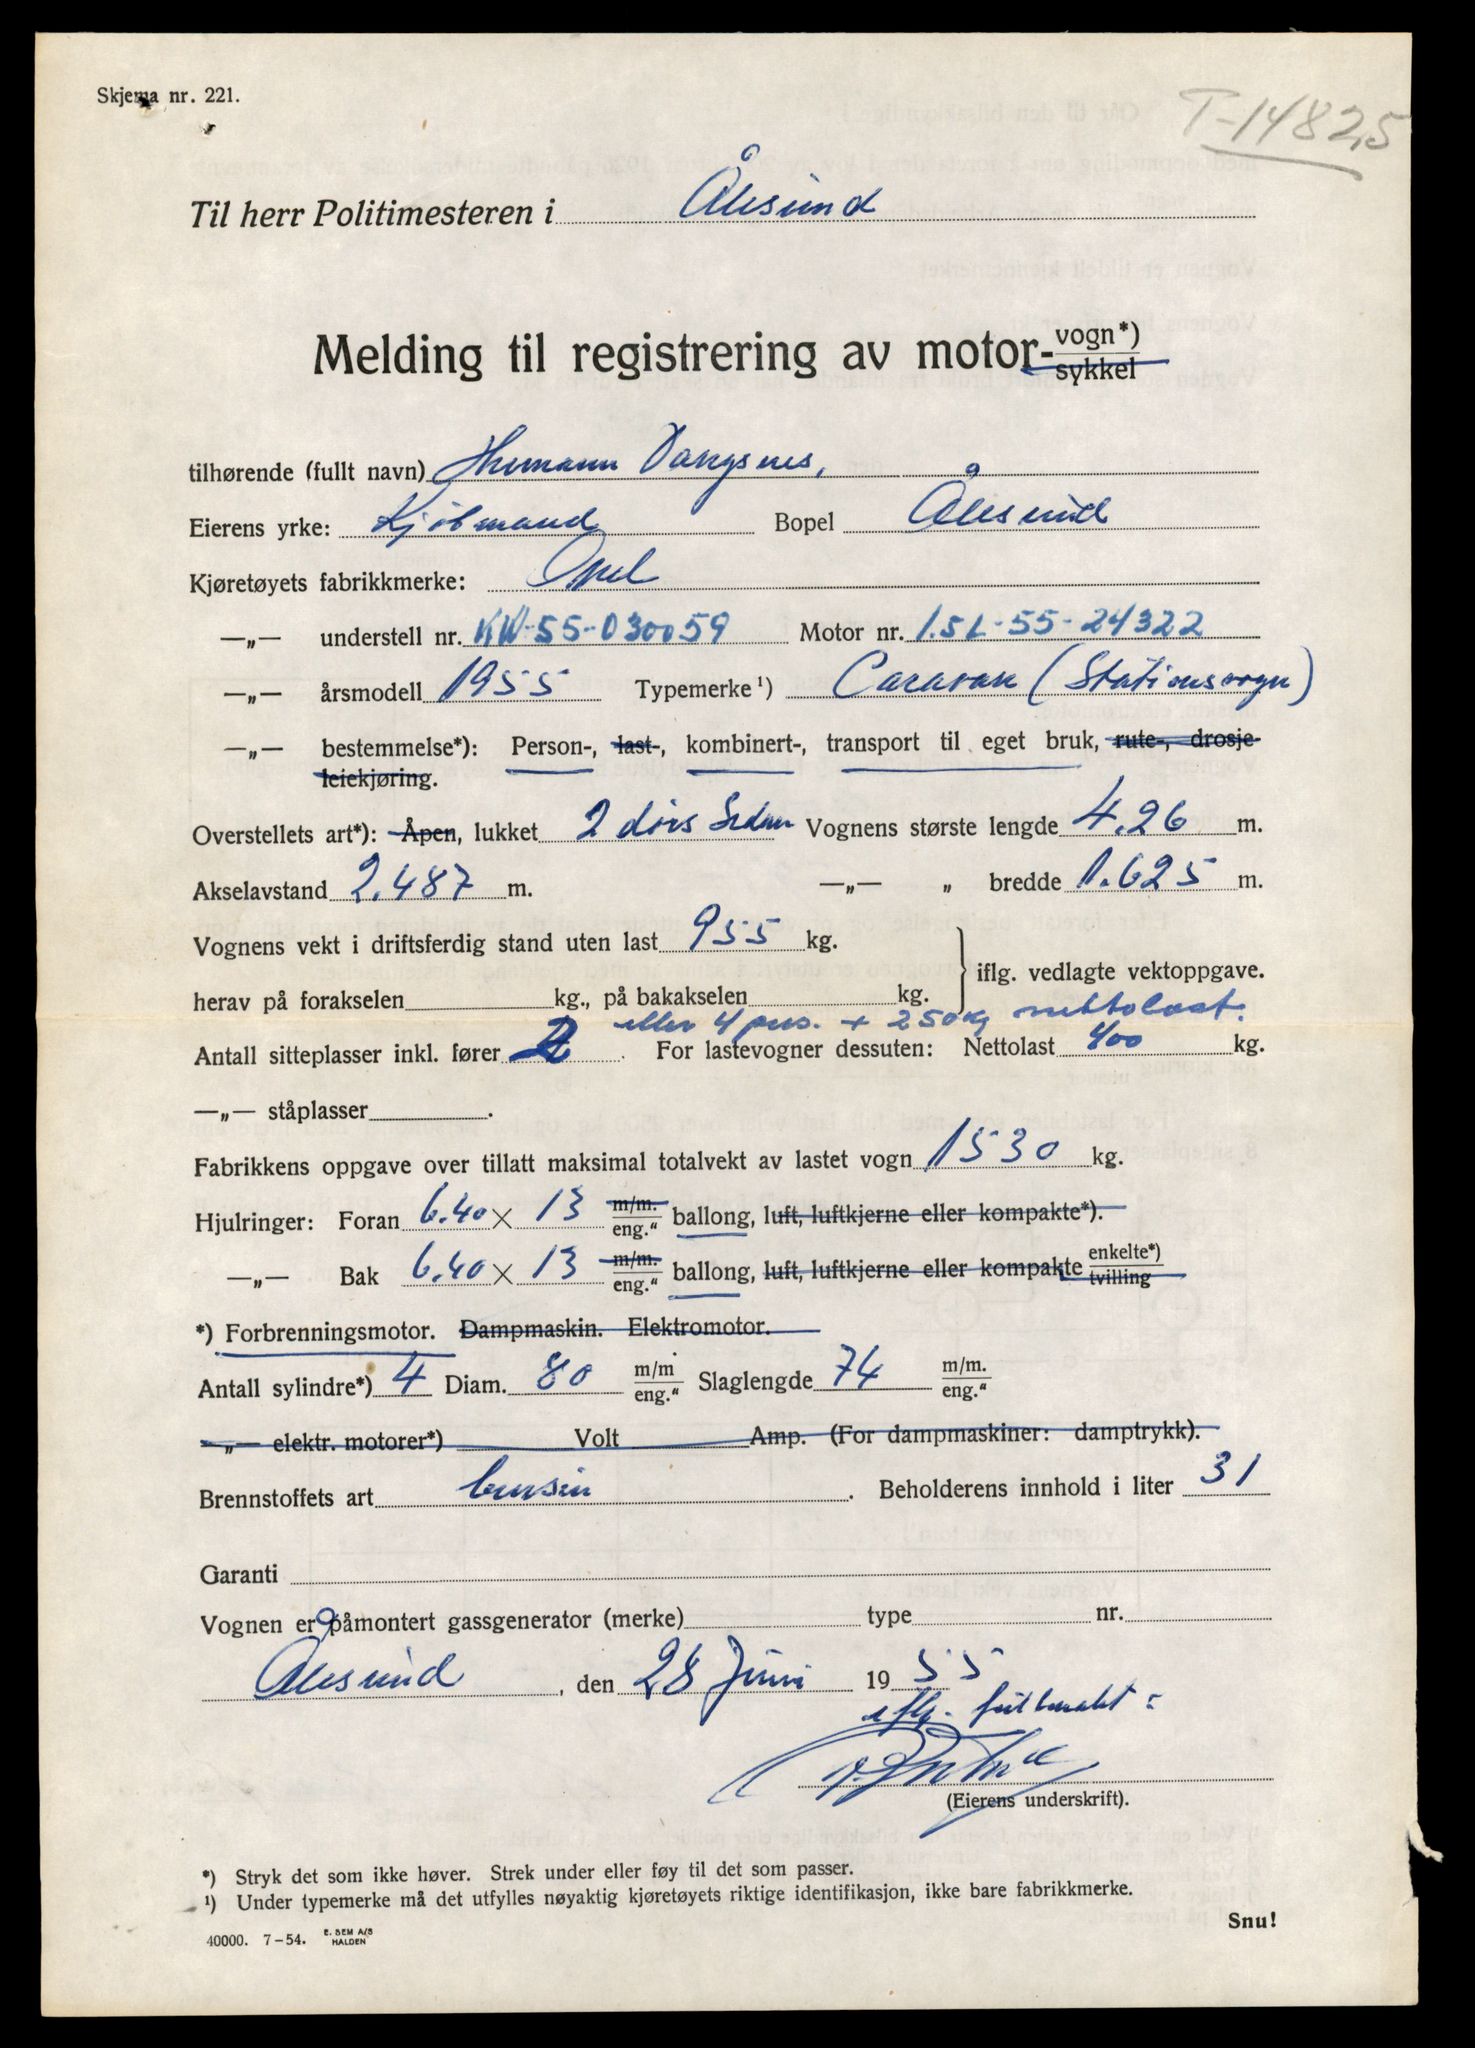 Skjema nr. 221.
T-14825
Til herr Politimesteren i Ålesund
Melding til registrering av motor- vogn*)
sykkel
tilhørende (fullt navn) Hermann Vangsnes,
Eierens yrke: Kjøbmand Bopel Ålesund
Kjøretøyets fabrikkmerke: Opel
—„— understell nr. KW-55-030059 Motor nr. 1.5L-55-24322
—„— årsmodell 1955 Typemerke¹) Caravan (Stationsvogn)
—„— bestemmelse*): Person-, last-, kombinert-, transport til eget bruk, rute-, drosje-
leiekjøring.
Overstellets art*): Åpen, lukket 2 dørs Sedan Vognens største lengde 4.26 m.
Akselavstand 2.487 m. —„— „ bredde 1.625 m.
Vognens vekt i driftsferdig stand uten last 955 kg.
iflg. vedlagte vektoppgave.
herav på forakselen kg., på bakakselen kg.
eller 4 pers. + 250 kg nettolast.
Antall sitteplasser inkl. fører 2 . For lastevogner dessuten: Nettolast 400 kg.
—„— ståplasser .
Fabrikkens oppgave over tillatt maksimal totalvekt av lastet vogn 1530 kg.
Hjulringer: Foran 6.40 × 13 m/m. eng." ballong, luft, luftkjerne eller kompakte*).
—„— Bak 6.40 × 13 m/m. eng." ballong, luft, luftkjerne eller kompakte enkelte*) tvilling
*) Forbrenningsmotor. Dampmaskin. Elektromotor.
Antall sylindre*) 4 Diam. 80 m/m eng." Slaglengde 74 m/m. eng."
—„— elektr. motorer*) Volt Amp. (For dampmaskiner: damptrykk).
Brennstoffets art bensin . Beholderens innhold i liter 31
Garanti
Vognen er påmontert gassgenerator (merke) type nr.
Ålesund , den 28 Juni 1955
iflg. fullmakt:
(Eierens underskrift).
*) Stryk det som ikke høver. Strek under eller føy til det som passer.
¹) Under typemerke må det utfylles nøyaktig kjøretøyets riktige identifikasjon, ikke bare fabrikkmerke.
Snu!
40000. 7-54. E. SEM A/S
HALDEN